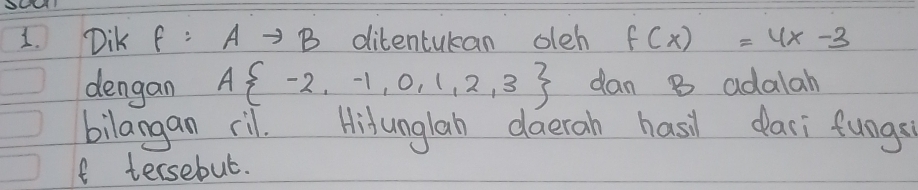 1. Dik f : A → B ditentukan oleh f(x) = 4x - 3
dengan A{ -2, -1, 0, 1, 2, 3 } dan B adalah
bilangan ril. Hitunglah daerah hasil dari fungsi
f tersebut.